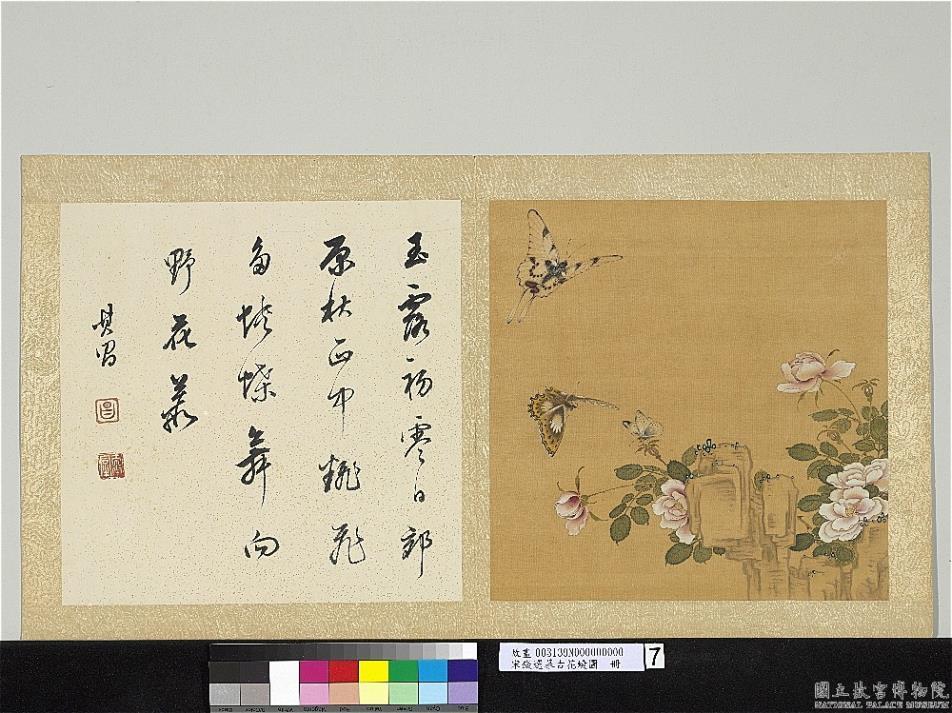 玉露初零日郊
原秋正中飛
蛺蝶舞向
野花叢
其昌
昌
故畫 003139N000000000
古花蝶圖 冊
7
國立故宮博物院
NATIONAL PALACE MUSEUM